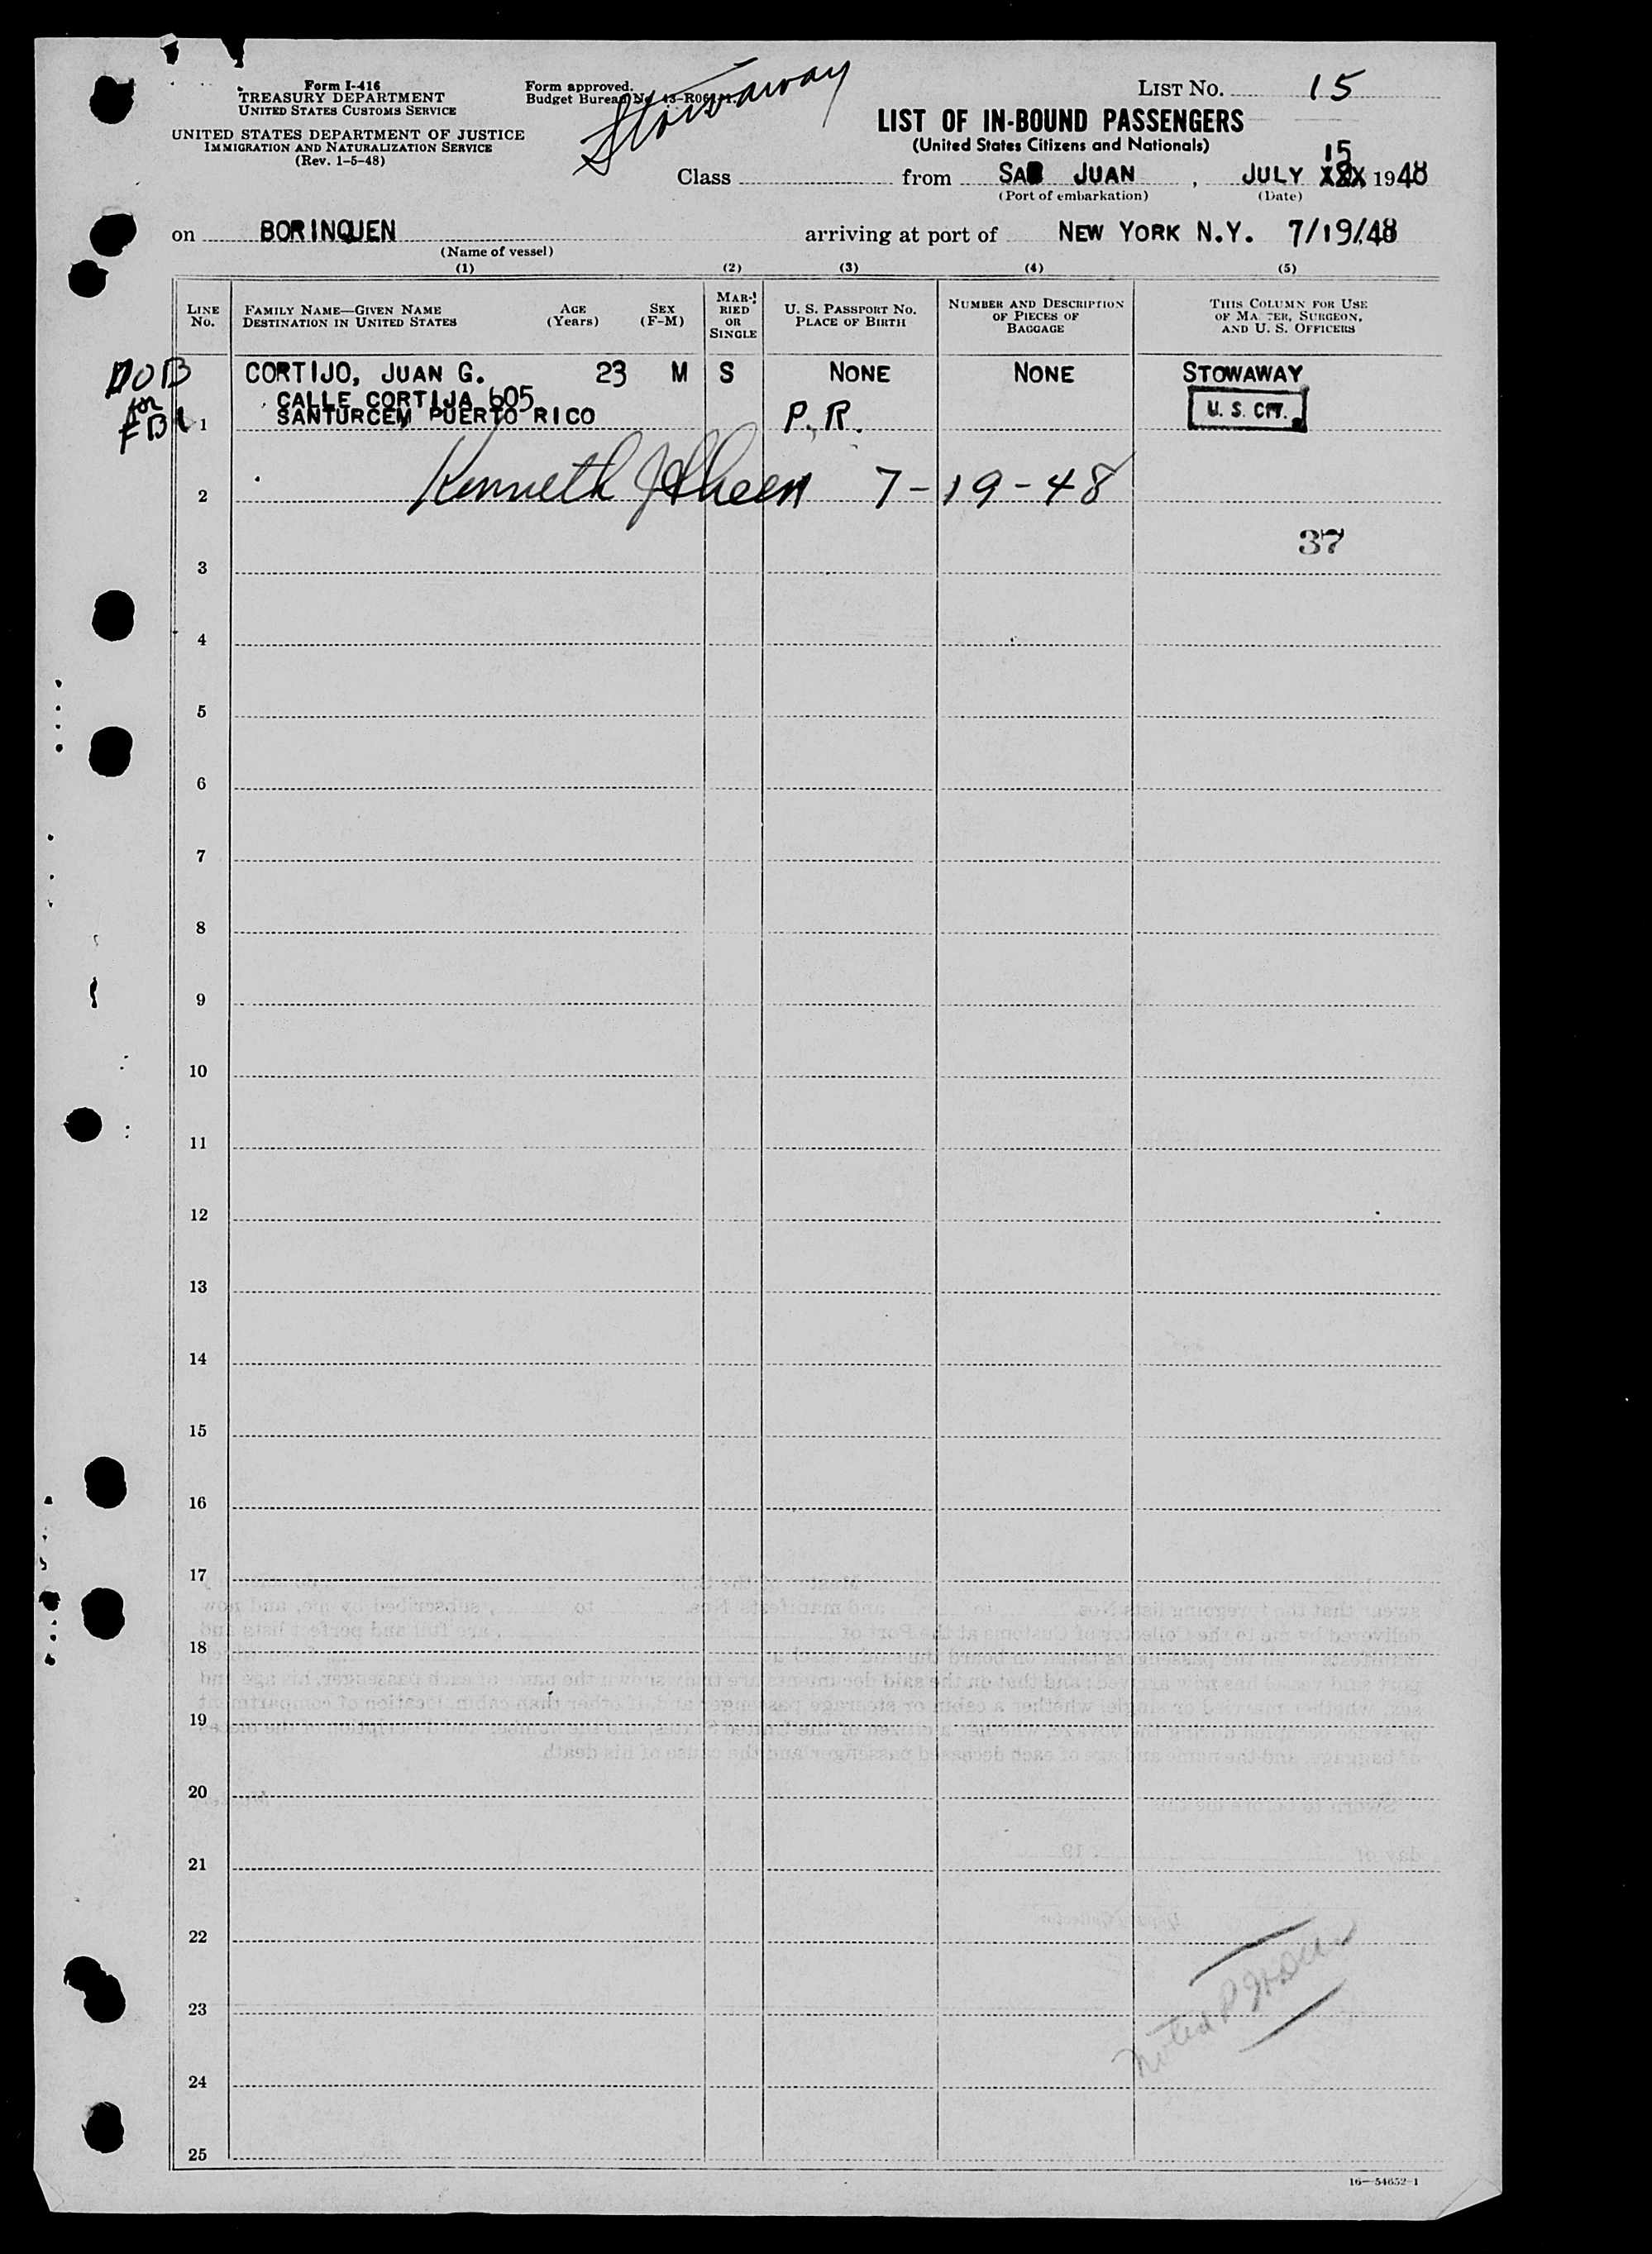 Form I-416
TREASURY DEPARTMENT
UNITED STATES CUSTOMS SERVICE
UNITED STATES DEPARTMENT OF JUSTICE
IMMIGRATION AND NATURALIZATION SERVICE
(Rev. 1-5-48)
Form approved.
Budget Bureau No. 43-R06
Stowaway
LIST NO. 15
LIST OF IN-BOUND PASSENGERS
(United States Citizens and Nationals)
Class from SAN JUAN , JULY 15 1948
(Port of embarkation) (Date)
on BORINQUEN arriving at port of NEW YORK N.Y. 7/19/48
(Name of vessel)
(1) (2) (3) (4) (5)
LINE No.
FAMILY NAME—GIVEN NAME
DESTINATION IN UNITED STATES
AGE (Years)
SEX (F-M)
MARRIED OR SINGLE
U. S. PASSPORT NO.
PLACE OF BIRTH
NUMBER AND DESCRIPTION OF PIECES OF BAGGAGE
THIS COLUMN FOR USE OF MASTER, SURGEON, AND U. S. OFFICERS
DOB CORTIJO, JUAN G. 23 M S NONE NONE STOWAWAY
for CALLE CORTIJA 605 U. S. CIT.
FBI 1 SANTURCEM PUERTO RICO P.R.
2 Kenneth J 7-19-48
37
3
4
5
6
7
8
9
10
11
12
13
14
15
16
17
18
19
20
21
22
23
Noted
24
25
16—54652-1